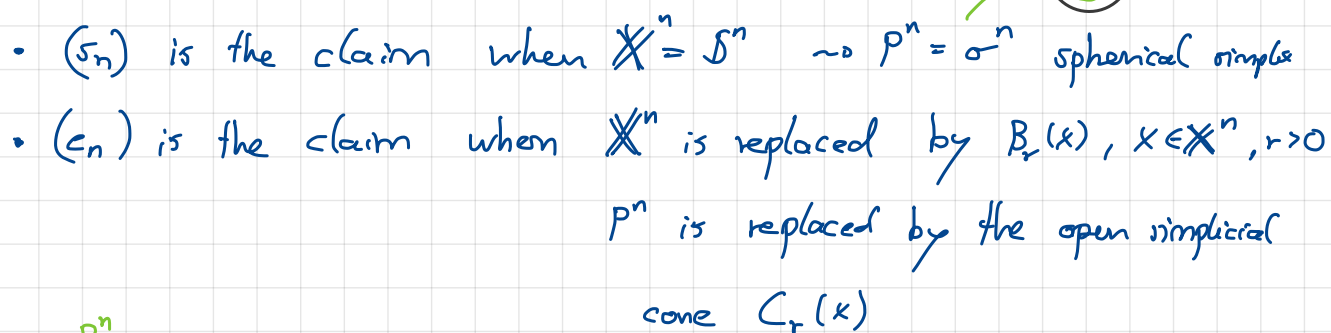 • (Sₙ) is the claim when 𝕏ⁿ = 𝕊ⁿ ⇝ Pⁿ = σⁿ spherical simplex
• (Cₙ) is the claim when 𝕏ⁿ is replaced by Bᵣ(x), x ∈ 𝕏ⁿ, r>0
Pⁿ is replaced by the open simplicial
cone Cᵣ(x)
Pⁿ